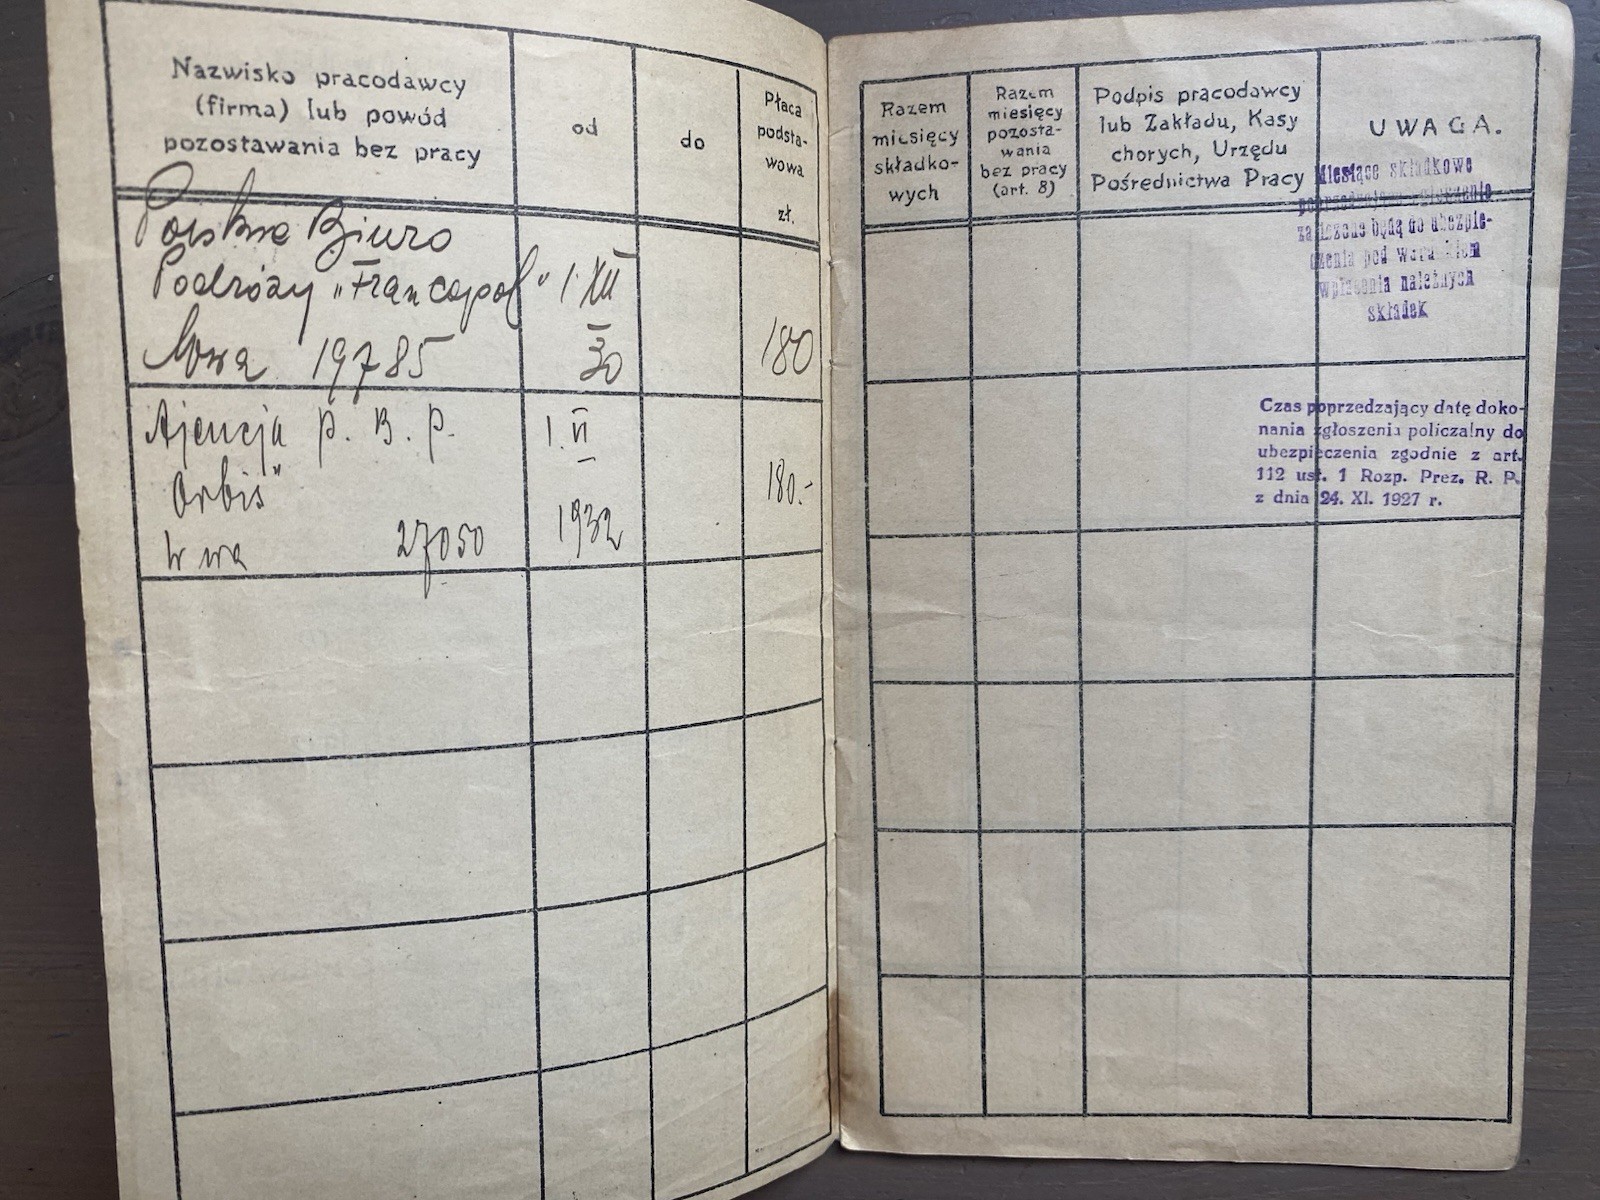 Nazwisko pracodawcy
(firma) lub powód
pozostawania bez pracy
od
do
Płaca
podsta-
wowa
zł.
Polskie Biuro
Podróży „Francopol" 1 XII
30
19785
180
Ajencja P. B. P.
1. VI
Orbis"
180.-
1932
W wa 27050
Razem
miesięcy
składko-
wych
Razem
miesięcy
pozosta-
wania
bez pracy
(art. 8)
Podpis pracodawcy
lub Zakładu, Kasy
chorych, Urzędu
Pośrednictwa Pracy
UWAGA.
Miesiące składkowe
zaliczone będą do ubezpie-
czenia pod warunkiem
wpłacenia należnych
składek
Czas poprzedzający datę doko-
nania zgłoszenia policzalny do
ubezpieczenia zgodnie z art.
112 ust. 1 Rozp. Prez. R. P.
z dnia 24. XI. 1927 r.